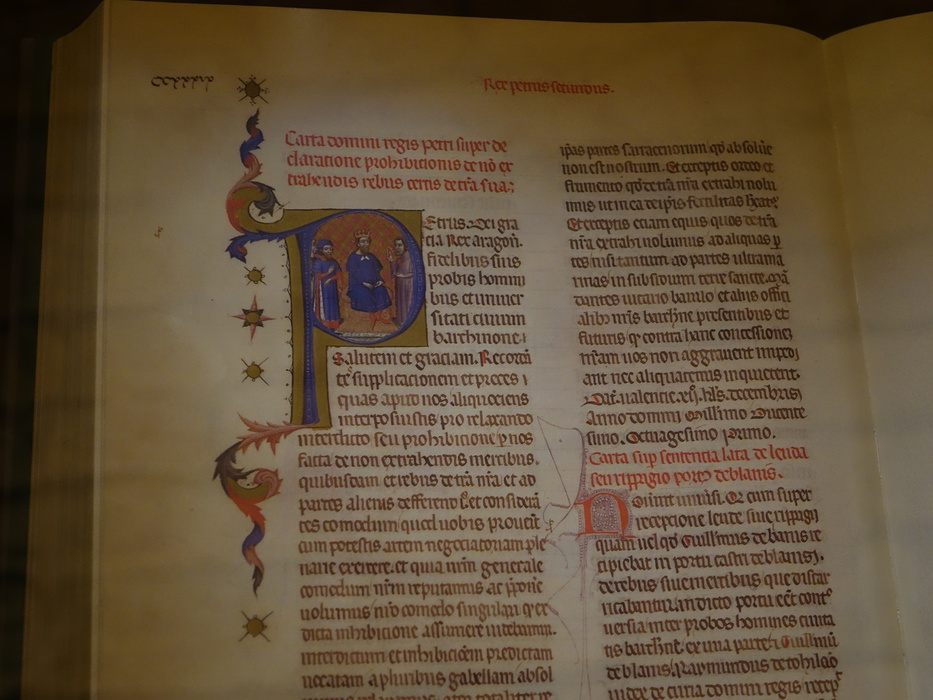 Rex petrus secundus.
Carta domini regis Petri super de
claratione prohibicionis de nō ex
trahendis rebus certis de tr̄a sua;
Petrus. Dei gra
cia Rex aragoñ.
fidelibus suis
probis homini
bus et univer
sitati civium
barchinone
Salutem et graciam. Recorda
supplicationem et preces
quas apud nos aliquociens
interposuistis pro relaxando
interdicto seu prohibicione p nos
facta de non extrahendis mercibus.
quibusdam et rebus de tr̄a nr̄a et ad
partes alienas defferendo Et considerā
tes comodum quod vobis provenit
cum potestis artem negociatoriam ple
narie exercere. et quia nr̄m generale
comodum nr̄m reputamus ac
volumus comodo singulari
dicta inhibicione assumere videbamur.
interdictum et inhibicionem predictam
a pluribus gabellam absol
ip̄as partes sarracenorum qd absolute
non est nostrum. Et exceptis ordeo et
frumento qd de tr̄a nr̄a extrahi nolu
mus
Et exceptis eciam equis quos de tr̄a
nr̄a extrahi volumus ad aliquas p
tes nisi tantum ad partes ultrama
rinas in subsidium terre sancte.
dantes vicario baiulo et aliis offici
alib nr̄is barchn̄e presentibus et
futuris q contra hanc concessionem
nr̄am vos non aggravent
ant nec aliquatenus inquietent.
Dat. valentie. decembris
Anno domini Millimo Ducente
simo. Octuagesimo primo.
Carta sup sententia lata de leuda
seu ripagio portꝰ de blanis.
Noverint univ̄si. Qr cum super
recepcione leude sive ripagii
quam vel qd Guillm̄us de banis re
cipiebat in portu castri de blanis.
de rebus sive mercibus que discar
ricabantur in dicto portu ēēt cont
versia inter probos homines civita
tis barchn̄e. ex una parte. Guillmū
de blanis. Raymundus de
iudex de curia domini regis